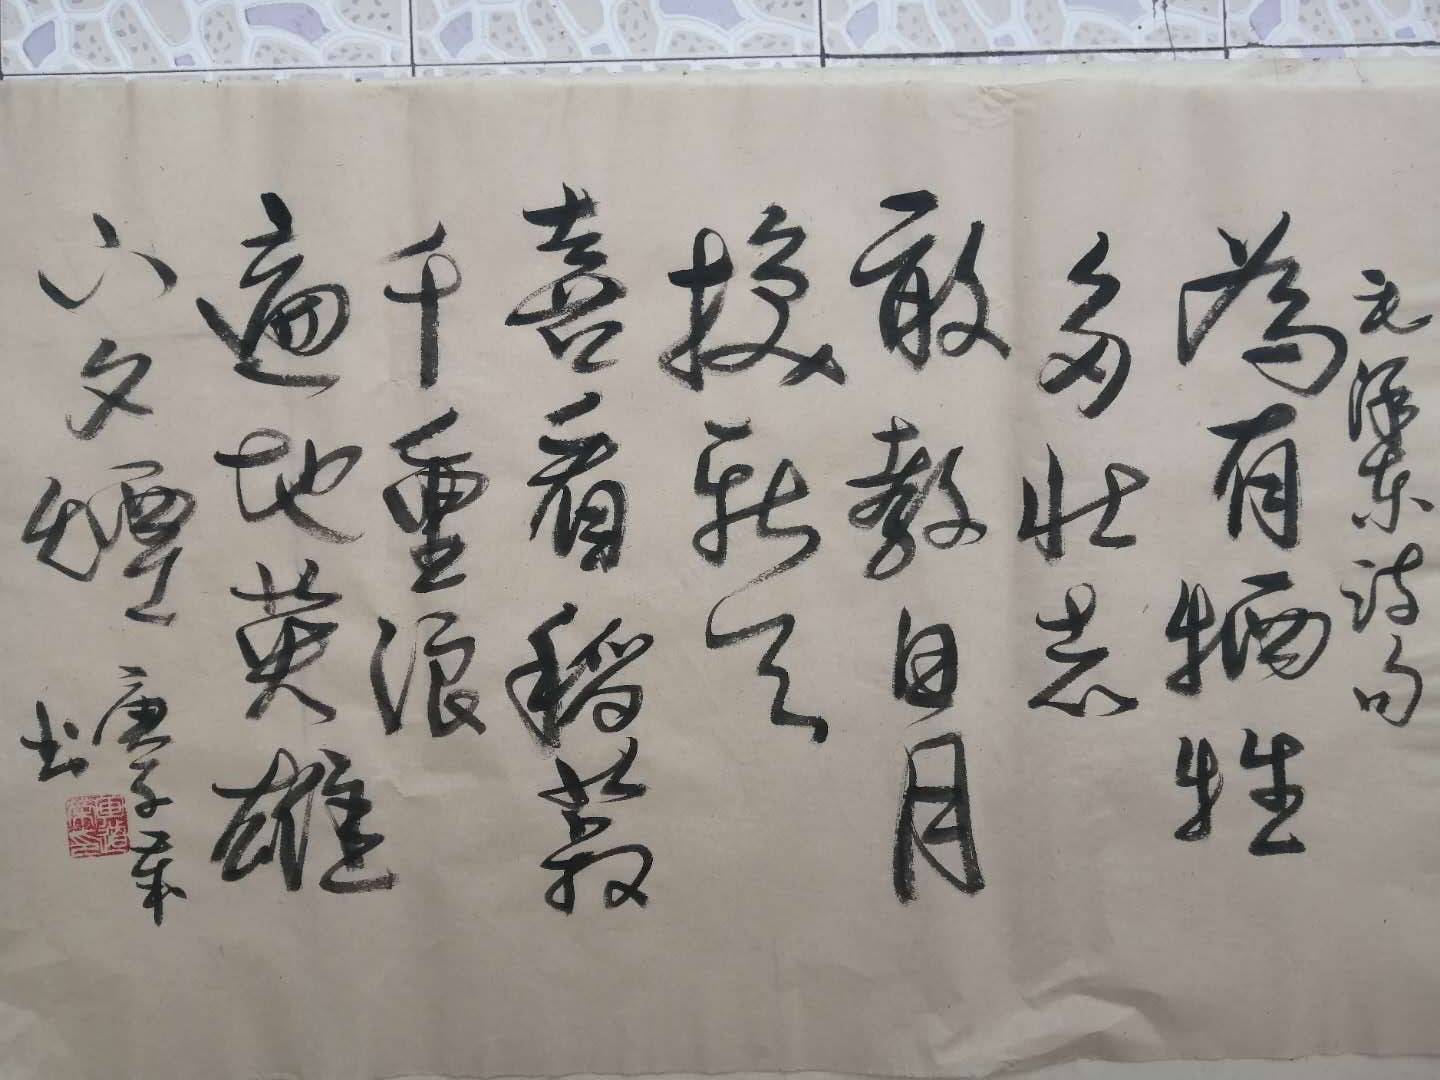 毛泽东诗句
為有牺牲
多壮志
敢教日月
换新天
喜看稻菽
千重浪
遍地英雄
下夕煙
庚子
书